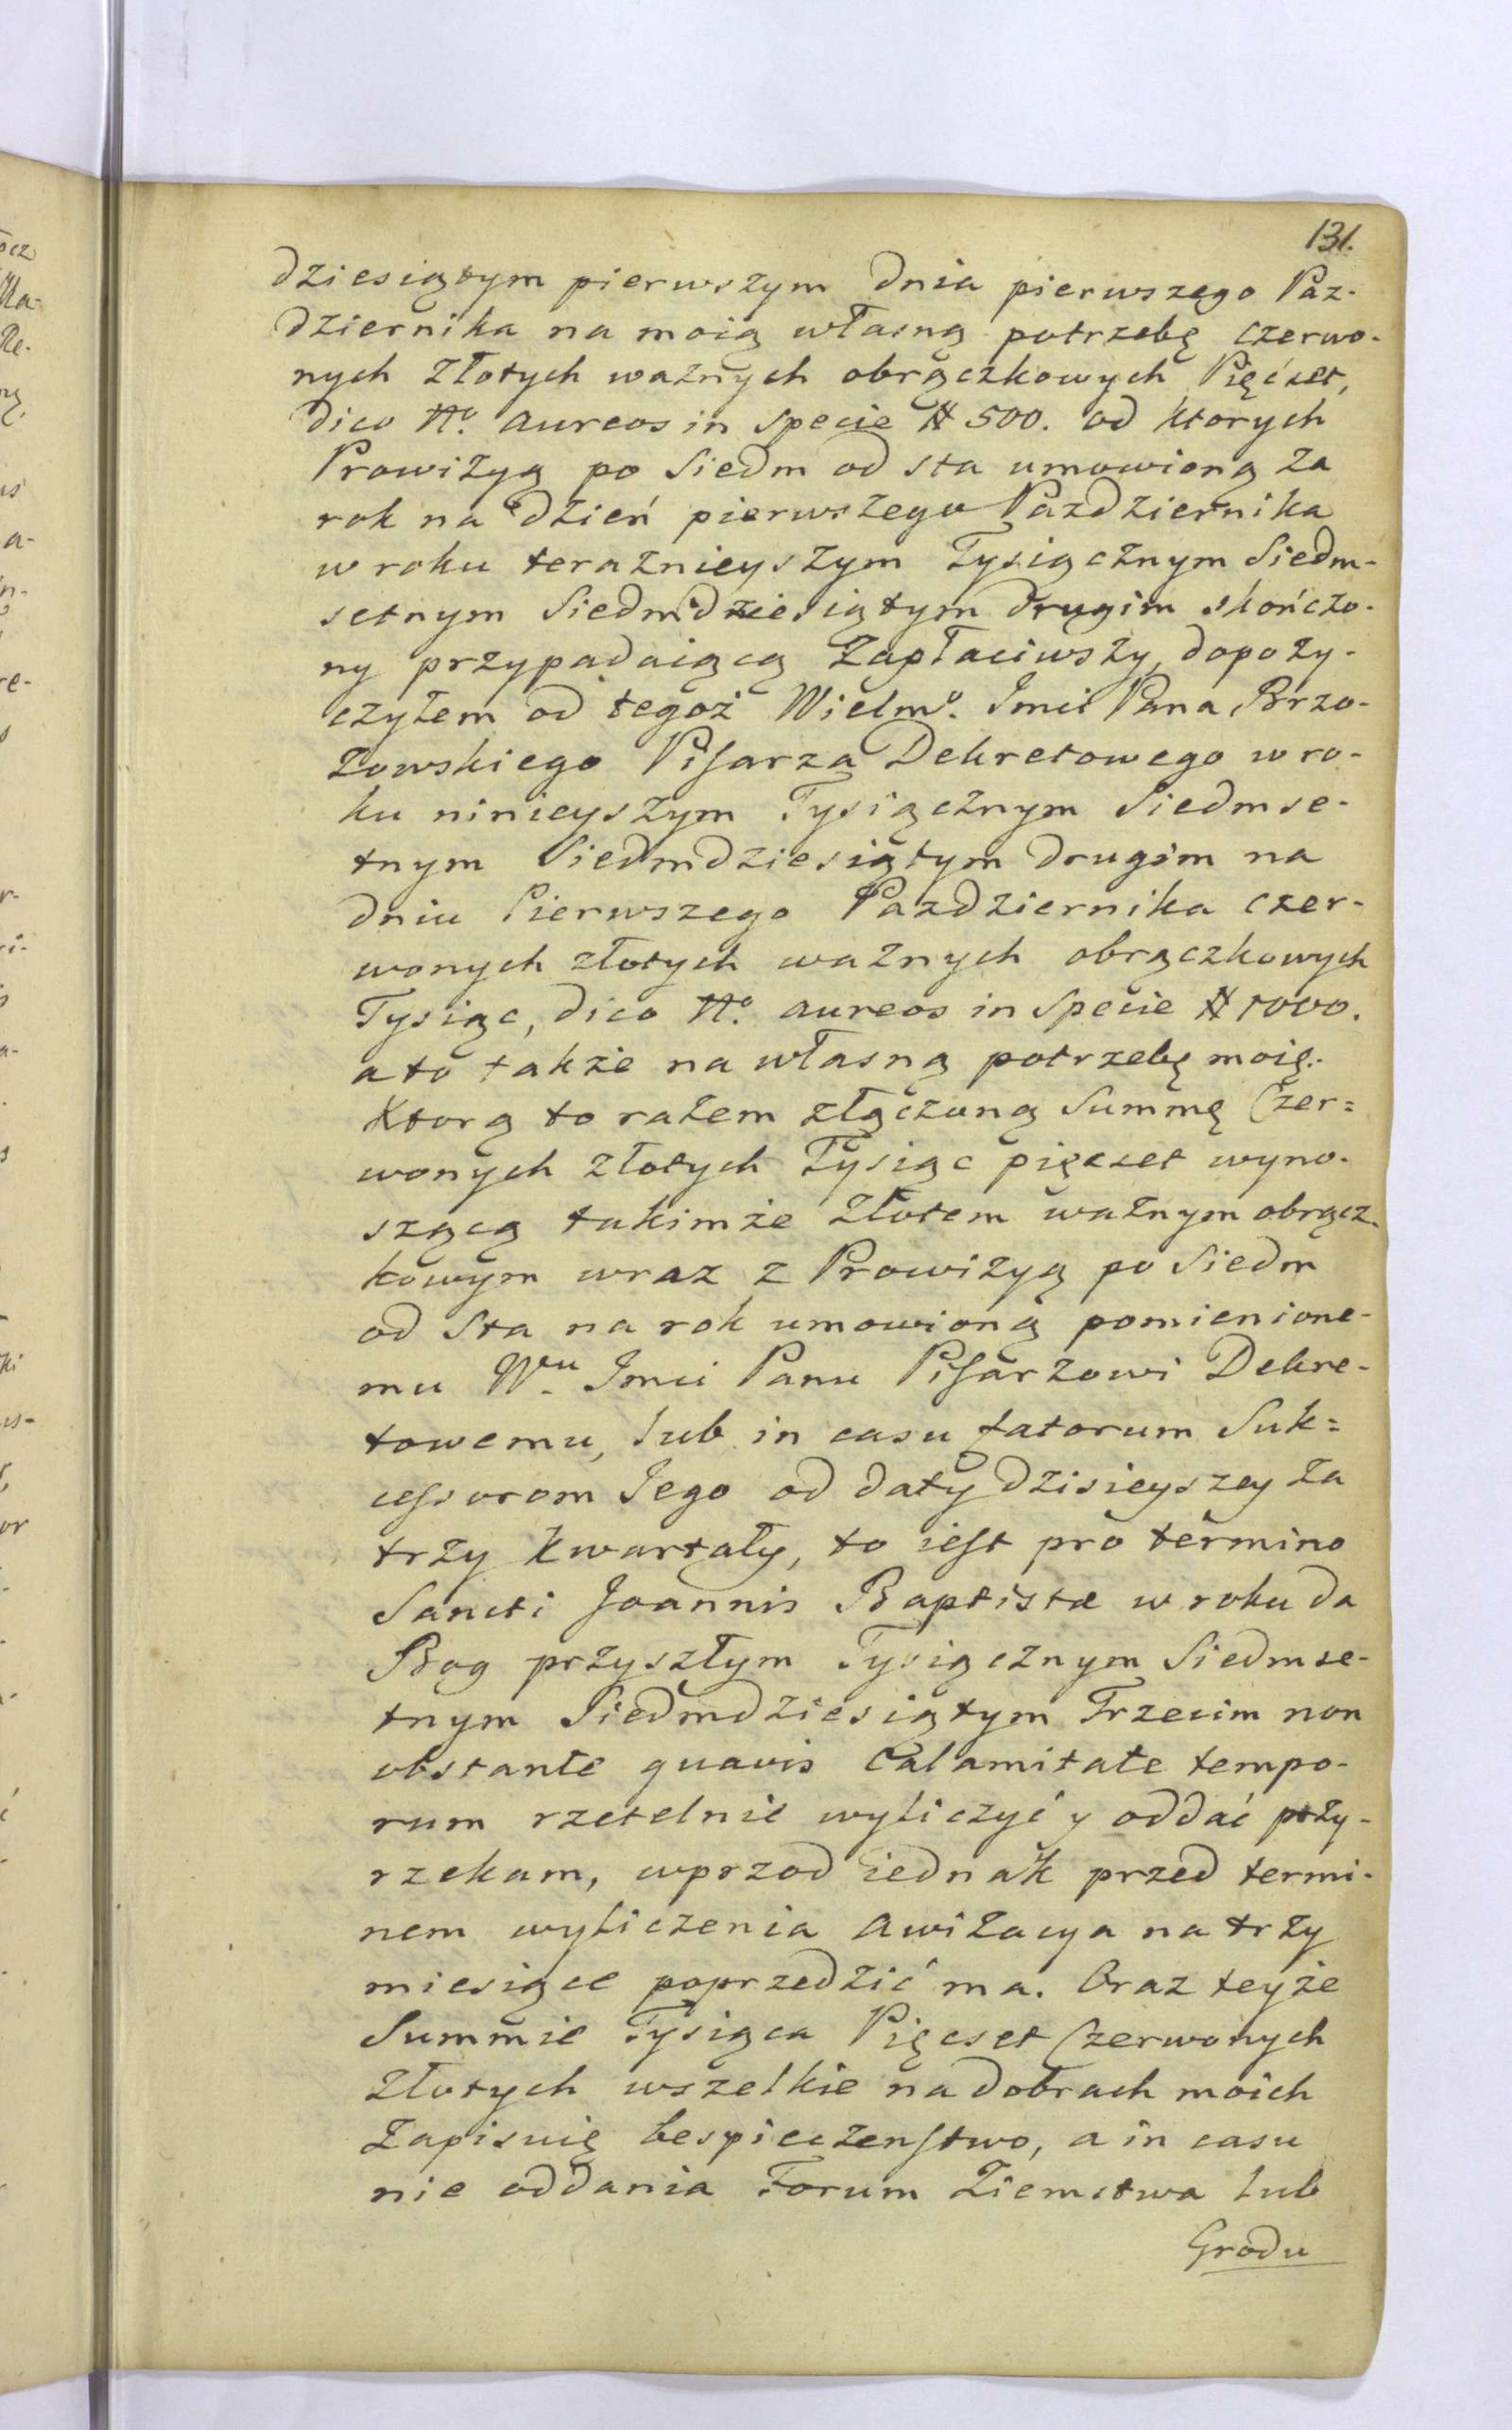 131.
dziesiątym pierwszym dnia pierwszego Paz-
dziernika na moią własną potrzebę czerwo-
nych złotych ważnych obrączkowych Pięćset,
dico No. aureos in specie # 500. od ktorych
Prowizyą po Siedm od sta umowioną za
rok na dzień pierwszego Pazdziernika
w roku teraznieyszym Tysiącznym Siedm-
setnym Siedmdziesiątym drugim skończo-
ny przypadaiącą zapłaciwszy, dopoży-
czyłem od tegoż Wielmo. Imci Pana Brzo-
zowskiego Pisarza Dekretowego w ro-
ku ninieyszym Tysiącznym Siedmse-
tnym Siedmdziesiątym drugim na
dniu Pierwszego Pazdziernika czer-
wonych złotych ważnych obrączkowych
Tysiąc, dico No. aureos in specie # 1000.
a to także na własną potrzebę moię.
Ktorą to razem złączoną Summę Czer=
wonych złotych Tysiąc pięcset wyno-
szącą takimże złotem ważnym obrącz-
kowym wraz z Prowizyą po Siedm
od Sta na rok umowioną pomienione-
mu Wu. Imci Panu Pisarzowi Dekre-
towemu, lub in casu fatorum Suk=
cessorom Jego od daty dzisieyszey za
trzy kwartały, to iest pro termino
Sancti Joannis Baptistæ w roku da
Bog przyszłym Tysiącznym Siedmse-
tnym Siedmdziesiątym Trzecim non
obstante quavis Calamitate tempo-
rum rzetelnie wyliczyć y oddać przy-
rzekam, wprzod iednak przed termi-
nem wyliczenia awizacya na trzy
miesiące poprzedzić ma. Oraz teyże
Summie Tysiąca Pięcset Czerwonych
Złotych wszelkie na dobrach moich
Zapisuię bespieczenstwo, a in casu
nie oddania Forum Ziemstwa lub
Grodu